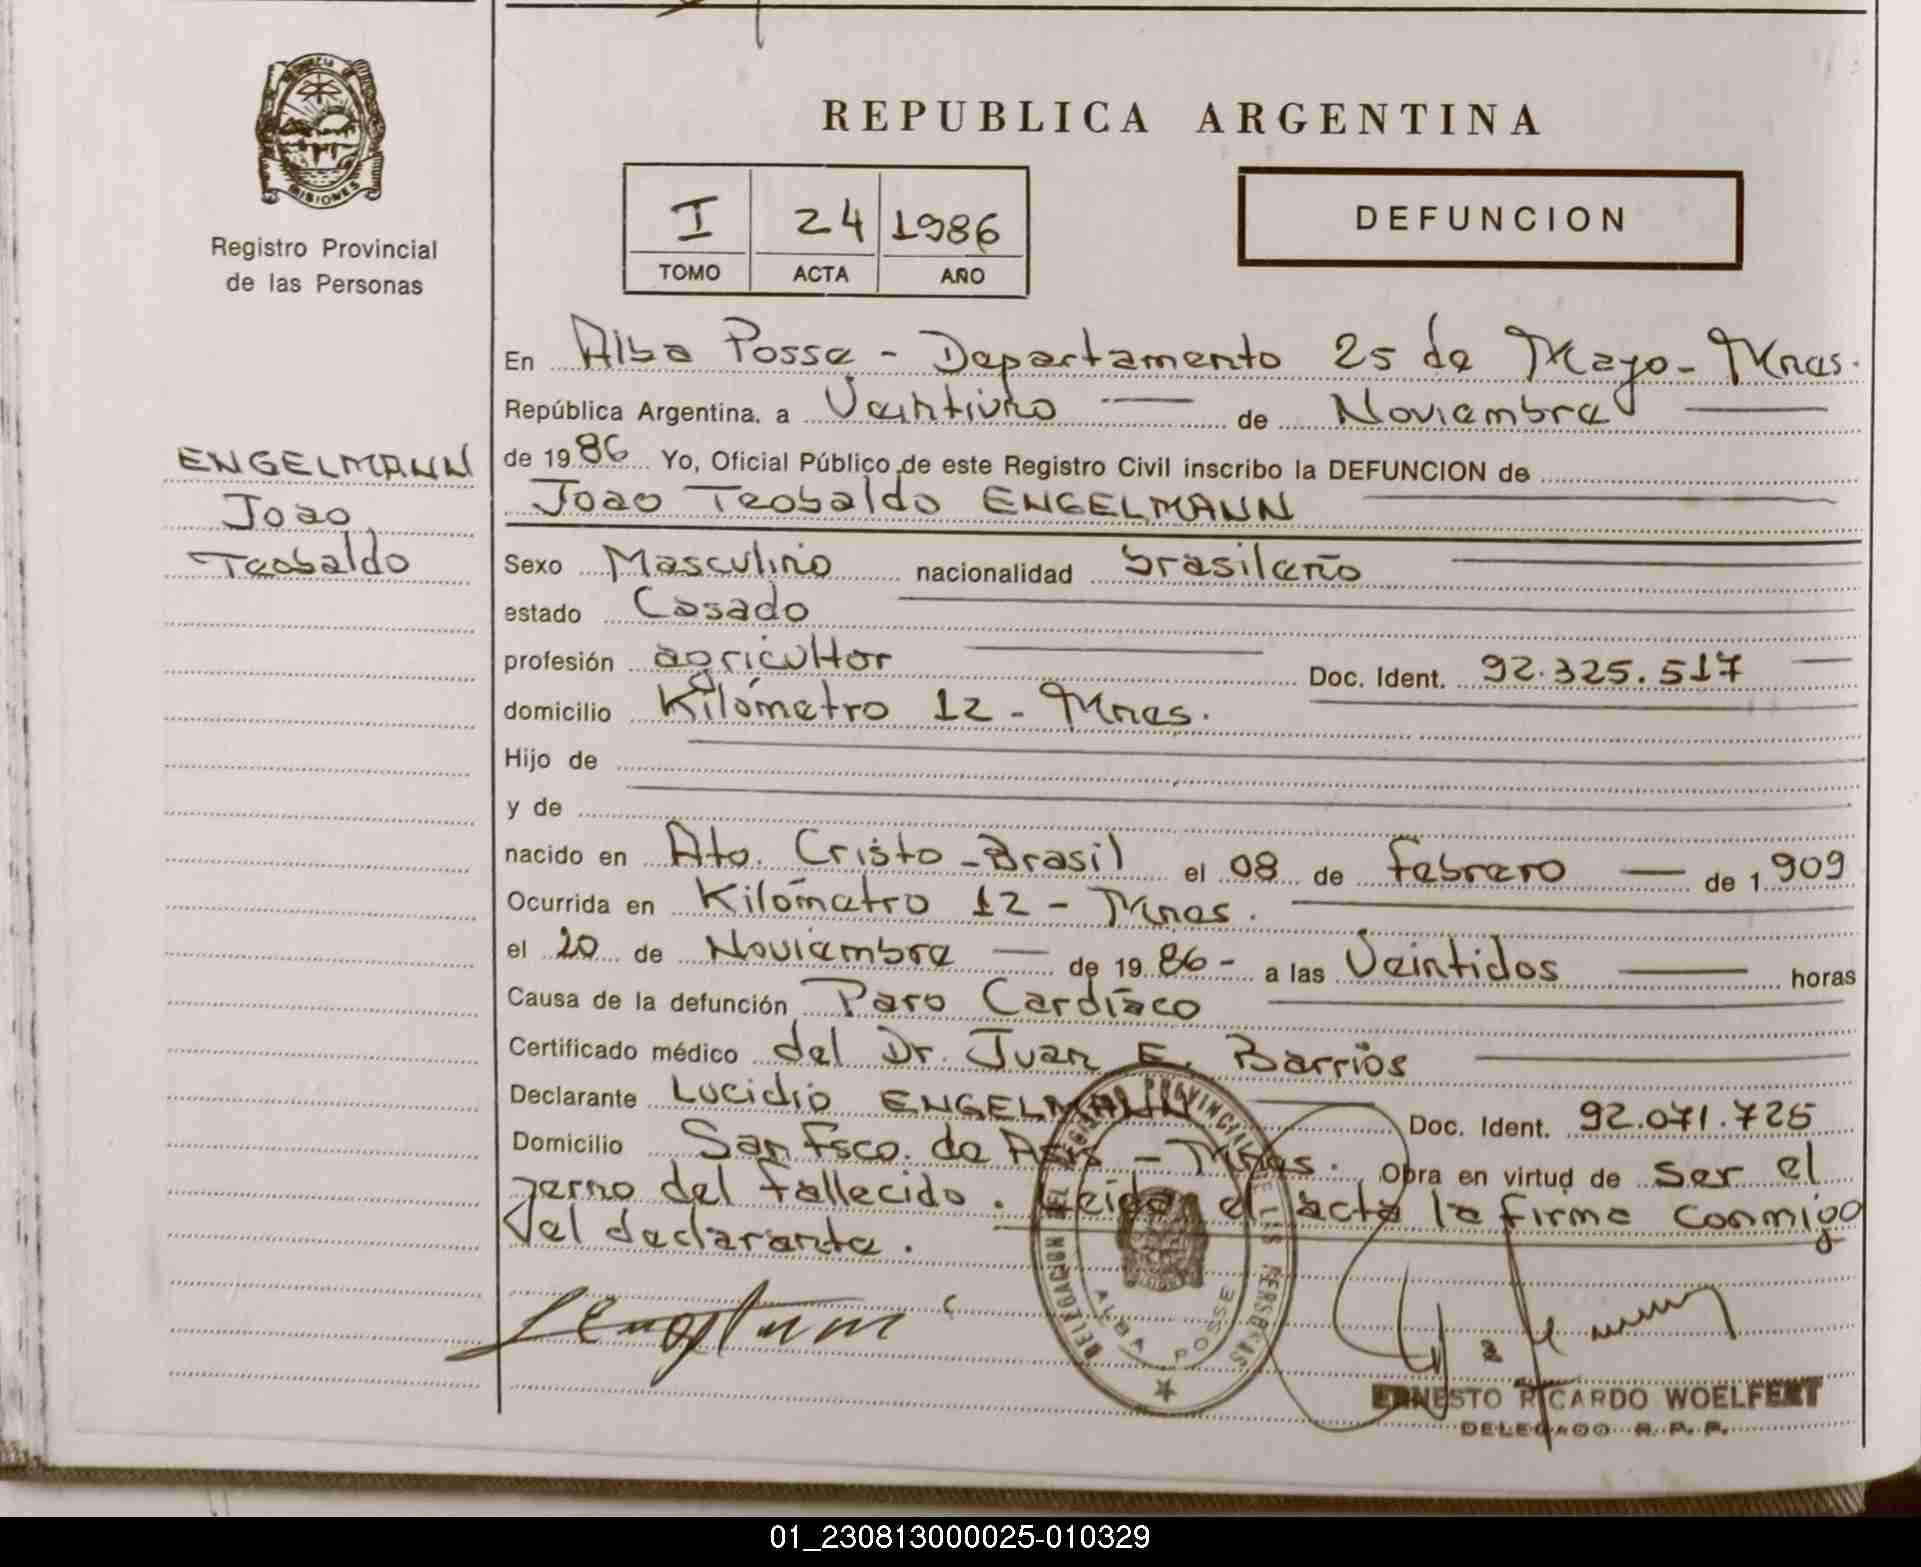 REPUBLICA ARGENTINA
PROVINCIA DE
MISIONES
Registro Provincial
de las Personas
I 24 1986
TOMO ACTA AÑO
DEFUNCION
En Alba Posse - Departamento 25 de Mayo - Mnes.
República Argentina, a Veintiuno de Noviembre
de 1986 Yo, Oficial Público de este Registro Civil inscribo la DEFUNCION de
Joao Teobaldo ENGELMANN
ENGELMANN
Joao
Teobaldo
Sexo Masculino nacionalidad brasileño
estado Casado
profesión agricultor Doc. Ident. 92.325.517
domicilio Kilómetro 12 - Mnes.
Hijo de
y de
nacido en Ato. Cristo - Brasil el 08 de febrero de 1909
Ocurrida en Kilómetro 12 - Mnes.
el 20 de Noviembre de 1986 - a las Veintidos horas
Causa de la defunción Paro Cardíaco
Certificado médico del Dr. Juan E. Barrios
Declarante Lucidio ENGELMANN Doc. Ident. 92.071.725
Domicilio San Fsco. de Asis - Mnes. Obra en virtud de ser el
yerno del fallecido. Leida el acta la firma conmigo
el declarante.
DELEGACION DEL REGISTRO PROVINCIAL DE LAS PERSONAS
ALBA POSSE
ERNESTO RICARDO WOELFERT
DELEGADO R. P. P.
01_230813000025-010329